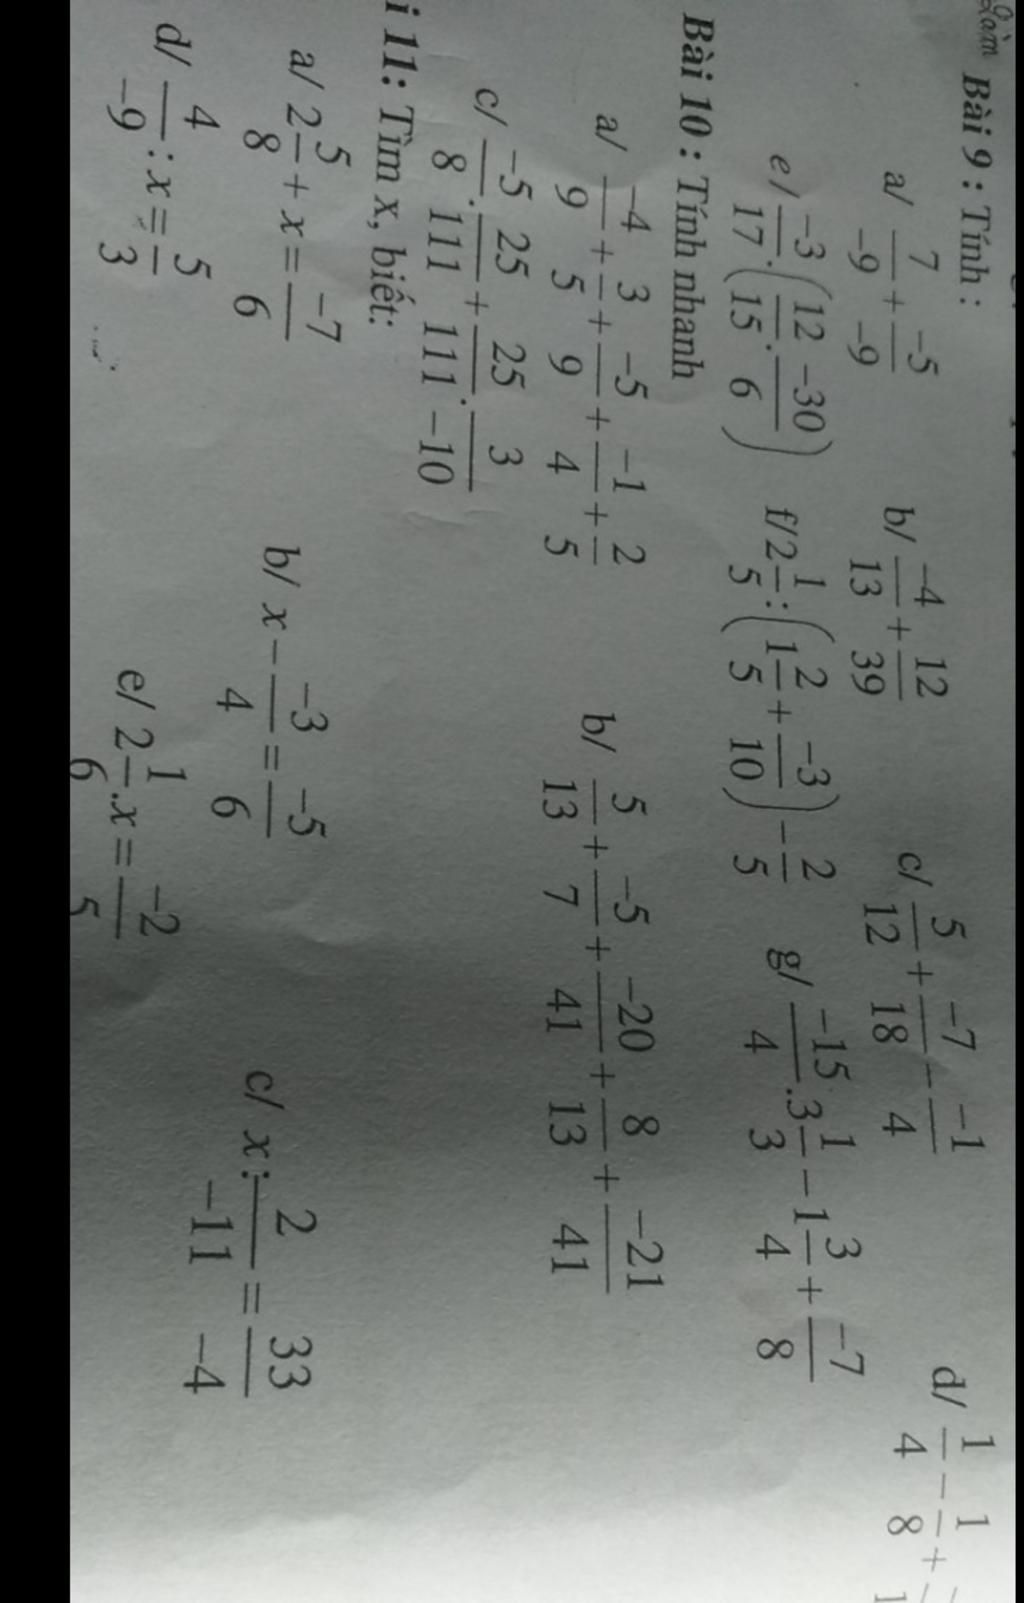 Làm Bài 9 : Tính :
a/ 7/-9 + -5/-9 b/ -4/13 + 12/39 c/ 5/12 + -7/18 - -1/4 d/ 1/4 - 1/8 +
e/ -3/17 . (12/15 . -30/6) f/ 2 1/5 : (1 2/5 + -3/10) - 2/5 g/ -15/4 . 3 1/3 - 1 3/4 + -7/8
Bài 10 : Tính nhanh
a/ -4/9 + 3/5 + -5/9 + -1/4 + 2/5 b/ 5/13 + -5/7 + -20/41 + 8/13 + -21/41
c/ -5/8 . 25/111 + 25/111 . 3/-10
i 11: Tìm x, biết:
a/ 2 5/8 + x = -7/6 b/ x - -3/4 = -5/6 c/ x : 2/-11 = 33/-4
d/ 4/-9 : x = 5/3 e/ 2 1/6 . x = -2/5